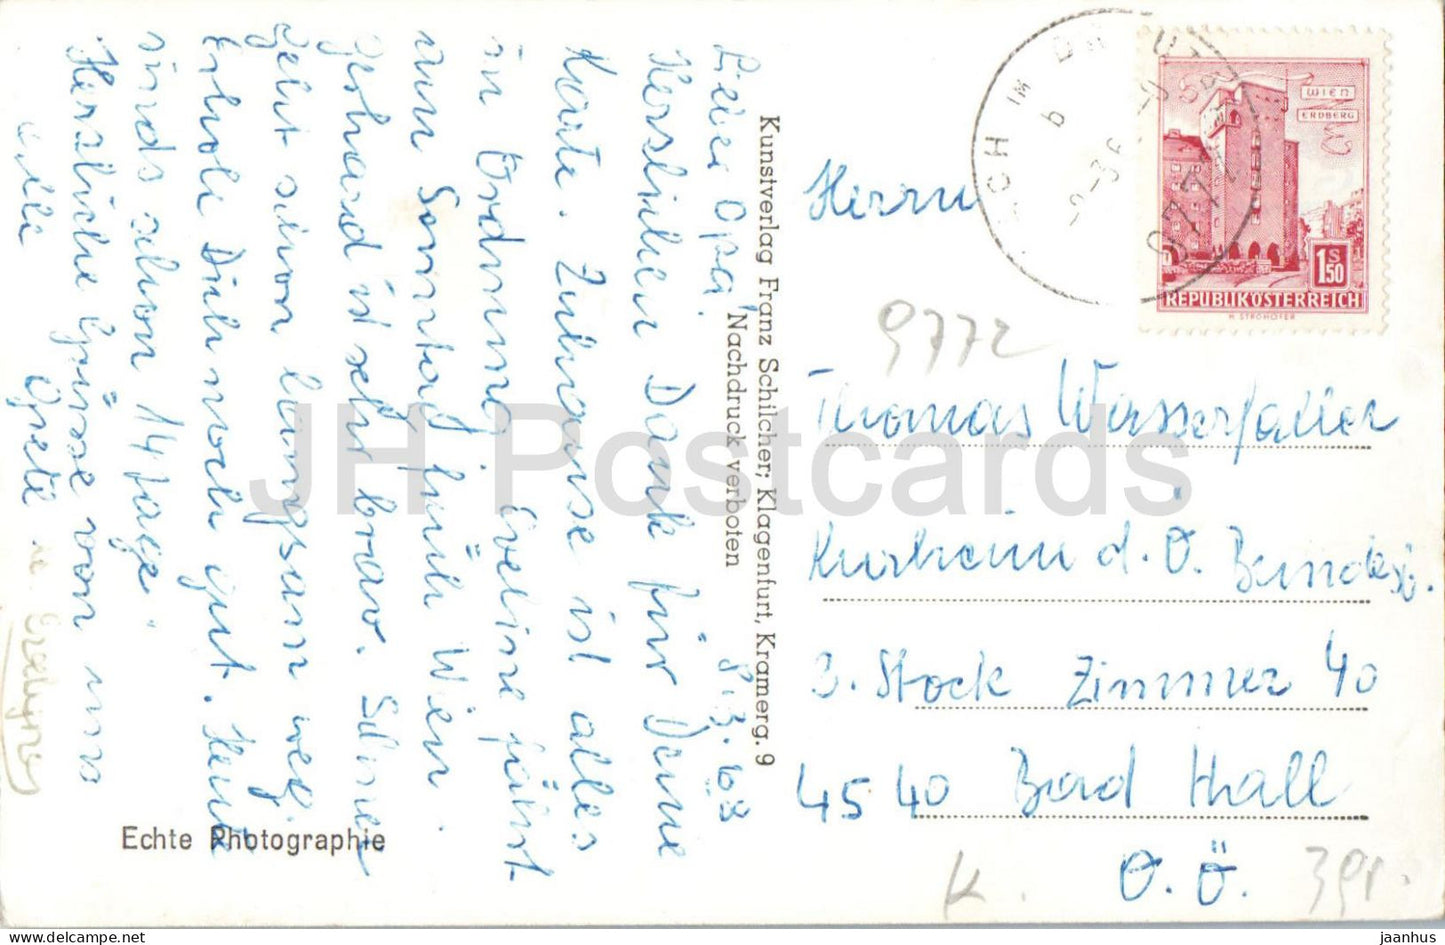 8.3.68
Lieber Opa!
Herzlichen Dank für Deine
Karte. Zuhause ist alles
in Ordnung. Eveline fährt
am Sonntag früh Wien.
Gerhard ist sehr brav. Schnee
geht schon langsam weg.
Erhole Dich noch gut. Heute
sinds schon 14 Tage.
Herzliche Grüsse von uns
alle
Greti
Echte Photographie
Kunstverlag Franz Schilcher; Klagenfurt, Kramerg. 9
Nachdruck verboten
WIEN
ERDBERG
1S50
REPUBLIK ÖSTERREICH
H. STROHOFER
Herrn
9772
Thomas Wasserfaller
Kurheim d. Ö. Bundesb.
3. Stock Zimmer 40
4540 Bad Hall
O.Ö.
K.
JH Postcards
jaanhus — www.delcampe.net